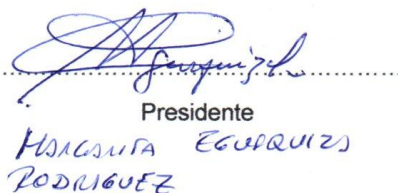 Presidente
MARGARITA EGUSQUIZA
RODRIGUEZ